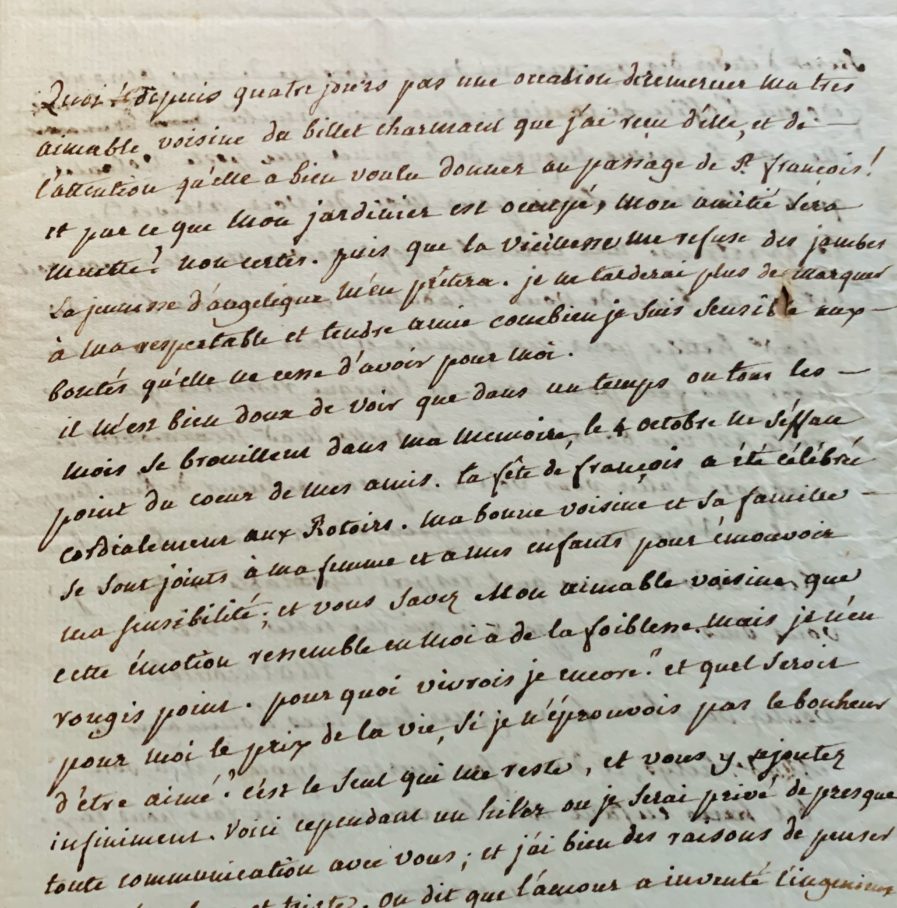 Quoi! depuis quatre joürs pas une occasion de remercier ma tres
aimable voisine du billet charmant que j'ai reçu d'elle, et de —
l'attention qu'elle a bien voulu donner au passage de St. françois!
et par ce que mon jardinier est occupé, mon amitié séra
muette? non certes. puis que la vieillesse me refuse des jambes
La jeunesse d'angelique m'en prêtera. je ne tarderai plus de marquer
à ma respectable et tendre amie combien je suis sensible aux —
bontés qu'elle ne cesse d'avoir pour moi.
il m'est bien doux de voir que dans un temps ou tous les —
mois se brouillent dans ma memoire, le 4 octobre ne s'éffáce
point du coeur de mes amis. la fête de françois a été célébrée
cordialement aux Rotoirs. ma bonne voisine et sa famille —
se sont joints à ma femme et a mes enfants pour émouvoir
ma sensibilité; et vous savez Mon aimable voisine que
cette émotion ressemble en moi à de la foiblesse. mais je n'en
rougis point. pourquoi vivrois je encore? et quel seroit
pour moi le prix de la vie, si je n'éprouvois pas le bonheur
d'être aimé? c'est le seul qui me reste, et vous y ajoutez
infiniment. Voici cependant un hiver ou je serai privé de presque
toute communication avec vous; et j'ai bien des raisons de penser
et triste. On dit que l'amour a inventé l'ingenieux